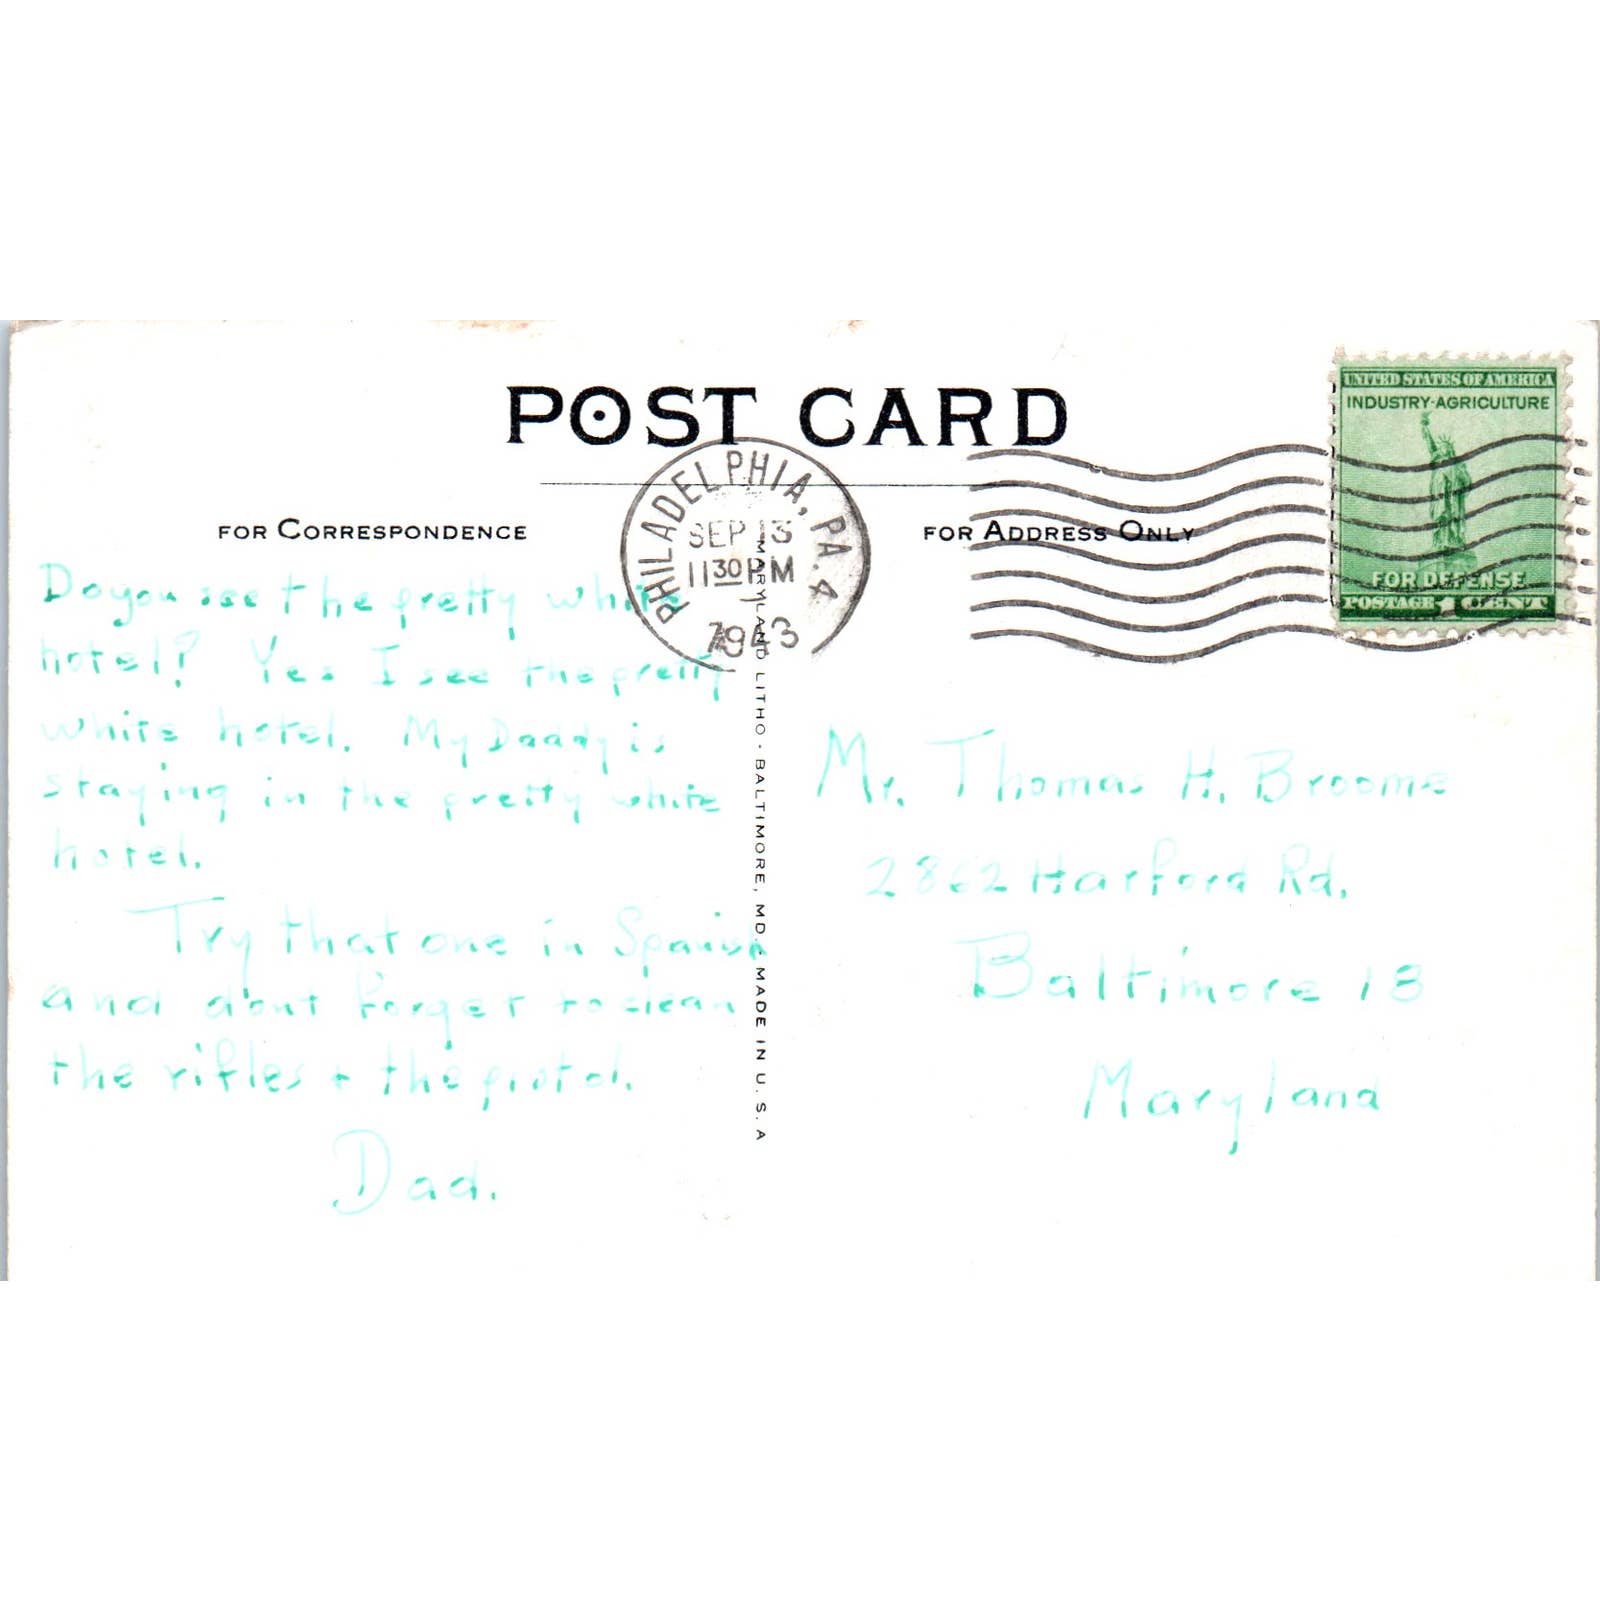 POST CARD
FOR CORRESPONDENCE
FOR ADDRESS ONLY
UNITED STATES OF AMERICA
INDUSTRY-AGRICULTURE
FOR DEFENSE
POSTAGE 1 CENT
PHILADELPHIA, PA. 4
SEP 13
11 30 PM
1943
MARYLAND LITHO · BALTIMORE, MD. · MADE IN U. S. A
Do you see the pretty white
hotel? Yes I see the pretty
white hotel. My Daddy is
staying in the pretty white
hotel.
Try that one in Spanish
and dont forget to clean
the rifles + the pistol.
Dad.
Mr. Thomas H. Broome
2862 Harford Rd.
Baltimore 18
Maryland